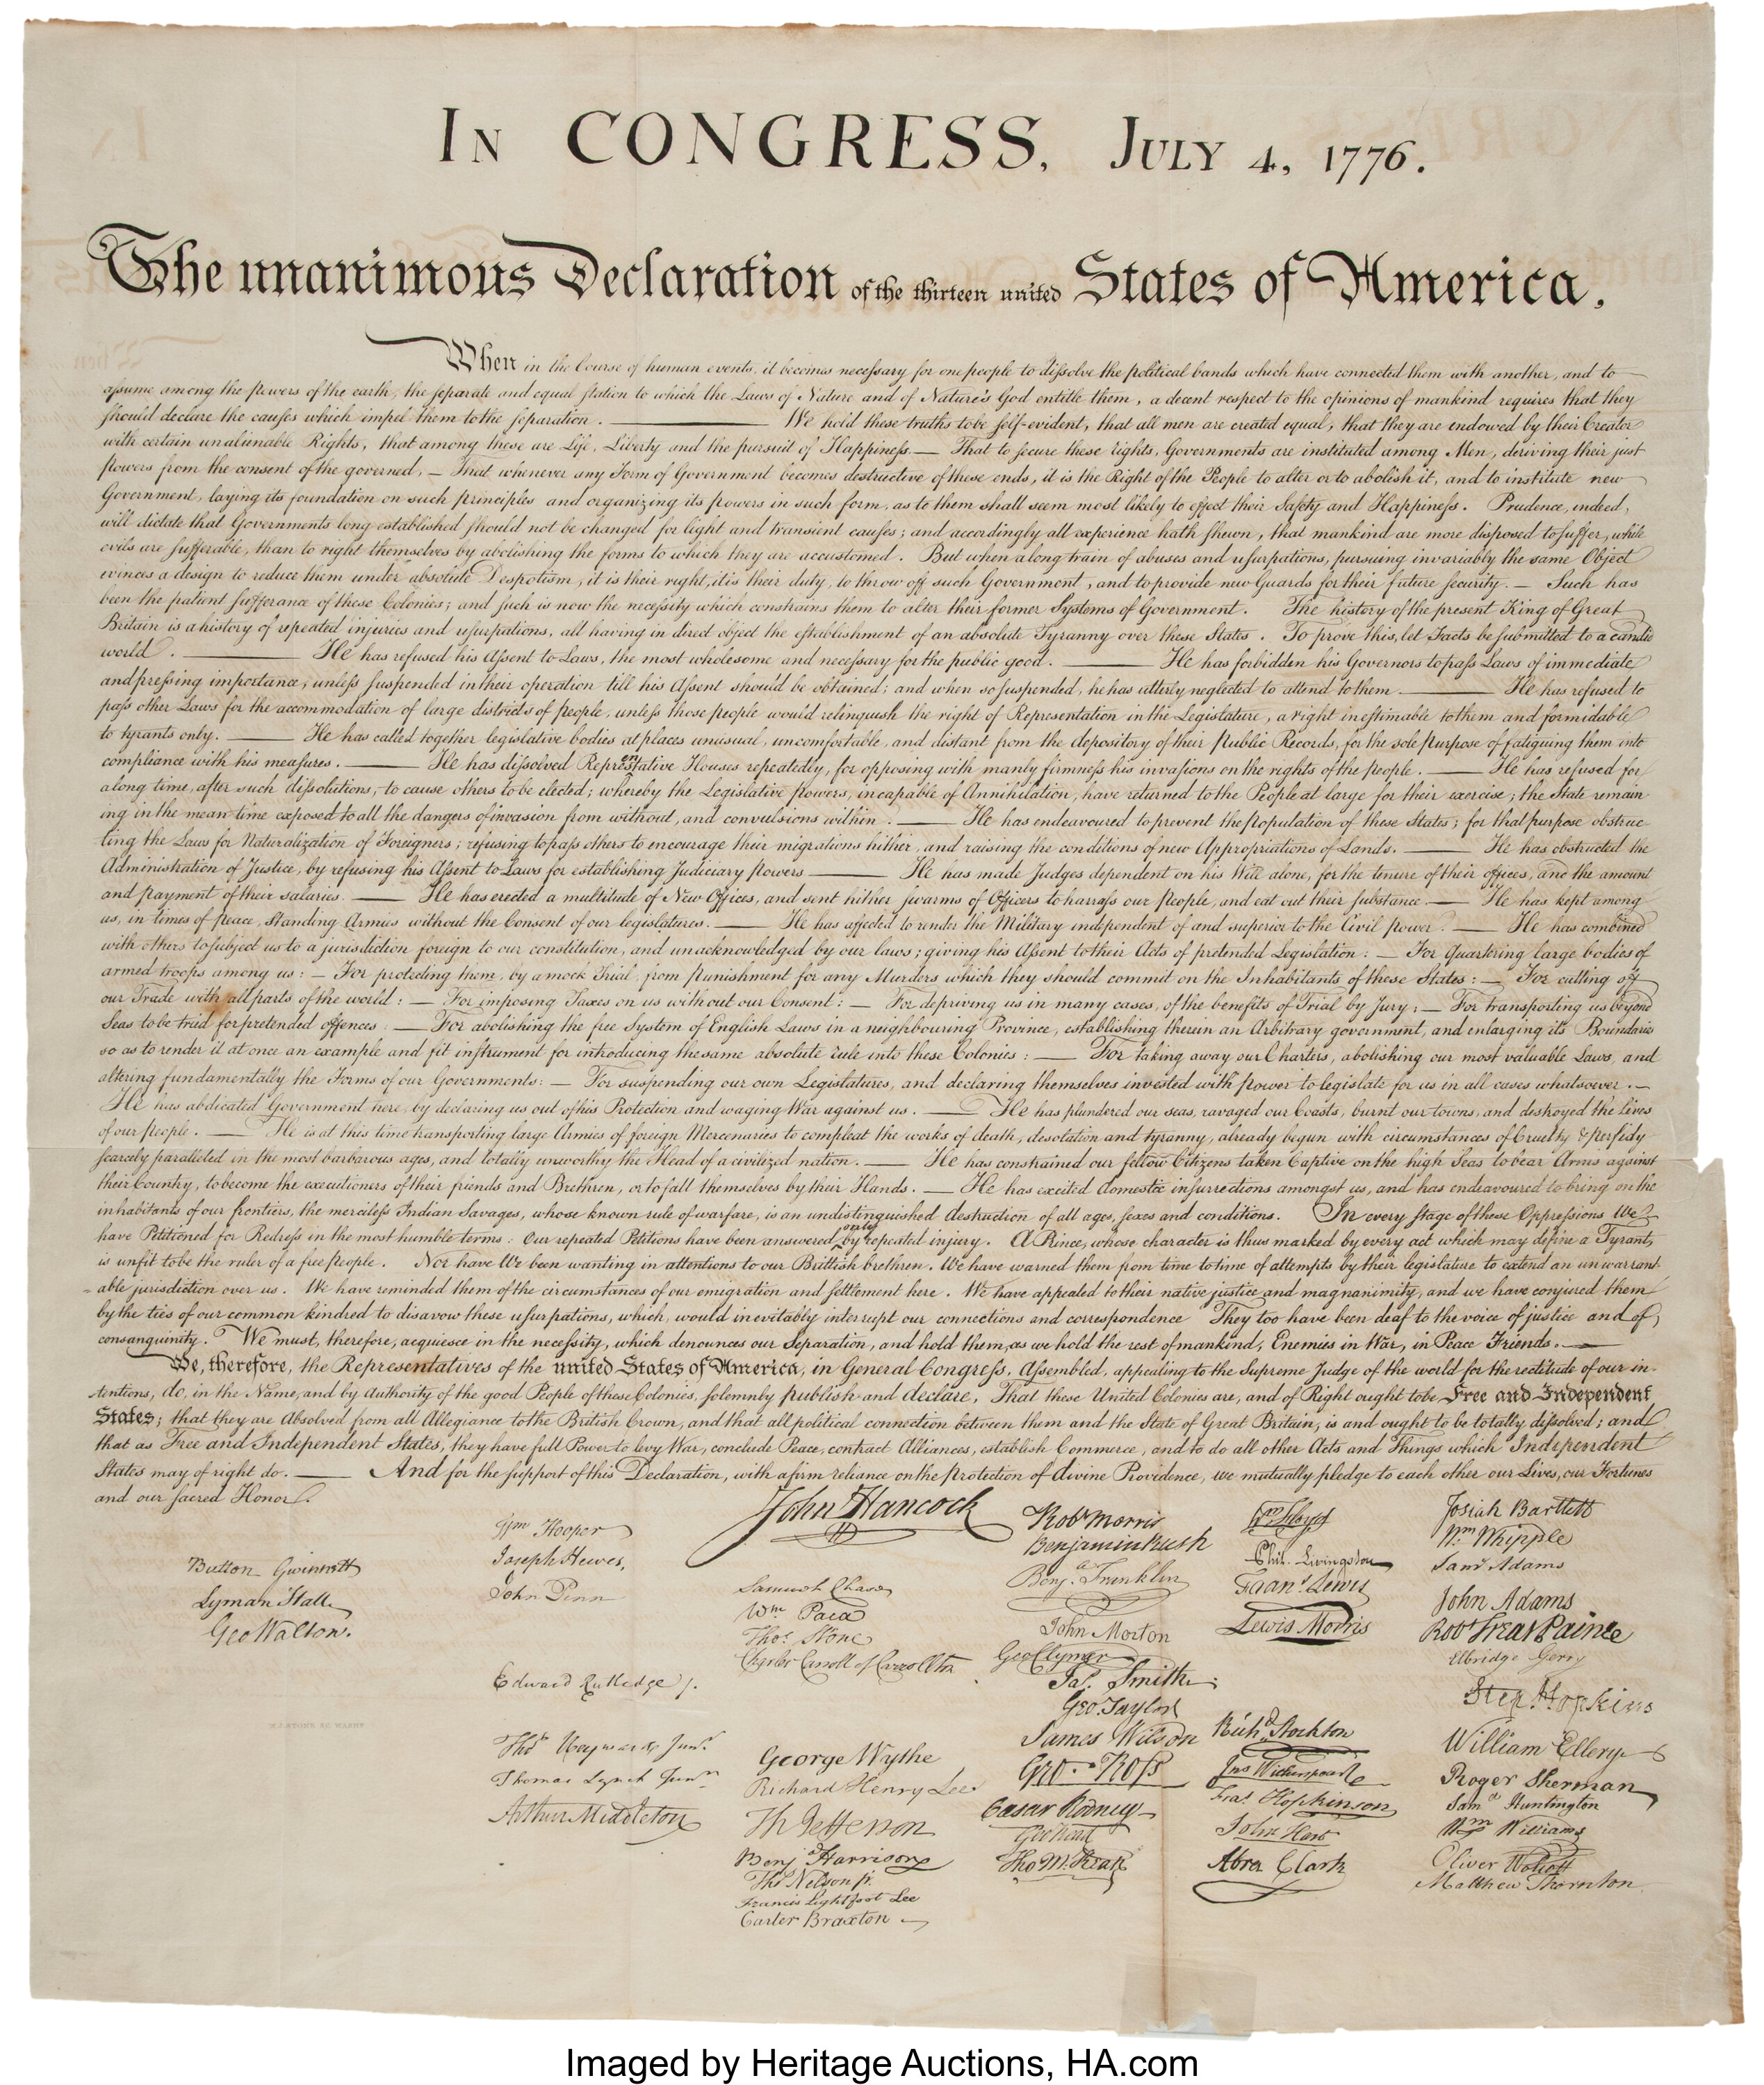 IN CONGRESS, JULY 4, 1776.
The unanimous Declaration of the thirteen united States of America,
When in the Course of human events, it becomes necessary for one people to dissolve the political bands which have connected them with another, and to
assume among the powers of the earth, the separate and equal station to which the Laws of Nature and of Nature's God entitle them, a decent respect to the opinions of mankind requires that they
should declare the causes which impel them to the separation. — We hold these truths to be self-evident, that all men are created equal, that they are endowed by their Creator
with certain unalienable Rights, that among these are Life, Liberty and the pursuit of Happiness. — That to secure these rights, Governments are instituted among Men, deriving their just
powers from the consent of the governed, — That whenever any Form of Government becomes destructive of these ends, it is the Right of the People to alter or to abolish it, and to institute new
Government, laying its foundation on such principles and organizing its powers in such form, as to them shall seem most likely to effect their Safety and Happiness. Prudence, indeed,
will dictate that Governments long established should not be changed for light and transient causes; and accordingly all experience hath shewn, that mankind are more disposed to suffer, while
evils are sufferable, than to right themselves by abolishing the forms to which they are accustomed. But when a long train of abuses and usurpations, pursuing invariably the same Object
evinces a design to reduce them under absolute Despotism, it is their right, it is their duty, to throw off such Government, and to provide new Guards for their future security. — Such has
been the patient sufferance of these Colonies; and such is now the necessity which constrains them to alter their former Systems of Government. The history of the present King of Great
Britain is a history of repeated injuries and usurpations, all having in direct object the establishment of an absolute Tyranny over these States. To prove this, let Facts be submitted to a candid
world. — He has refused his Assent to Laws, the most wholesome and necessary for the public good. — He has forbidden his Governors to pass Laws of immediate
and pressing importance, unless suspended in their operation till his Assent should be obtained; and when so suspended, he has utterly neglected to attend to them. — He has refused to
pass other Laws for the accommodation of large districts of people, unless those people would relinquish the right of Representation in the Legislature, a right inestimable to them and formidable
to tyrants only. — He has called together legislative bodies at places unusual, uncomfortable, and distant from the depository of their Public Records, for the sole purpose of fatiguing them into
compliance with his measures. — He has dissolved Representative Houses repeatedly, for opposing with manly firmness his invasions on the rights of the people. — He has refused for
a long time, after such dissolutions, to cause others to be elected; whereby the Legislative powers, incapable of Annihilation, have returned to the People at large for their exercise; the State remain
ing in the mean time exposed to all the dangers of invasion from without, and convulsions within. — He has endeavoured to prevent the population of these States; for that purpose obstruc
ting the Laws for Naturalization of Foreigners; refusing to pass others to encourage their migrations hither, and raising the conditions of new Appropriations of Lands. — He has obstructed the
Administration of Justice, by refusing his Assent to Laws for establishing Judiciary powers — He has made Judges dependent on his Will alone, for the tenure of their offices, and the amount
and payment of their salaries. — He has erected a multitude of New Offices, and sent hither swarms of Officers to harrass our people, and eat out their substance. — He has kept among
us, in times of peace, Standing Armies without the Consent of our legislatures. — He has affected to render the Military independent of and superior to the Civil power. — He has combined
with others to subject us to a jurisdiction foreign to our constitution, and unacknowledged by our laws; giving his Assent to their Acts of pretended Legislation: — For Quartering large bodies of
armed troops among us: — For protecting them, by a mock Trial, from punishment for any Murders which they should commit on the Inhabitants of these States: — For cutting off
our Trade with all parts of the world: — For imposing Taxes on us without our Consent: — For depriving us in many cases, of the benefits of Trial by Jury: — For transporting us beyond
Seas to be tried for pretended offences: — For abolishing the free System of English Laws in a neighbouring Province, establishing therein an Arbitrary government, and enlarging its Boundaries
so as to render it at once an example and fit instrument for introducing the same absolute rule into these Colonies: — For taking away our Charters, abolishing our most valuable Laws, and
altering fundamentally the Forms of our Governments: — For suspending our own Legislatures, and declaring themselves invested with power to legislate for us in all cases whatsoever. —
He has abdicated Government here, by declaring us out of his Protection and waging War against us. — He has plundered our seas, ravaged our Coasts, burnt our towns, and destroyed the Lives
of our people. — He is at this time transporting large Armies of foreign Mercenaries to compleat the works of death, desolation and tyranny, already begun with circumstances of Cruelty & perfidy
scarcely paralleled in the most barbarous ages, and totally unworthy the Head of a civilized nation. — He has constrained our fellow Citizens taken Captive on the high Seas to bear Arms against
their Country, to become the executioners of their friends and Brethren, or to fall themselves by their Hands. — He has excited domestic insurrections amongst us, and has endeavoured to bring on the
inhabitants of our frontiers, the merciless Indian Savages, whose known rule of warfare, is an undistinguished destruction of all ages, sexes and conditions. In every stage of these Oppressions We
have Petitioned for Redress in the most humble terms: Our repeated Petitions have been answered only by repeated injury. A Prince, whose character is thus marked by every act which may define a Tyrant,
is unfit to be the ruler of a free people. Nor have We been wanting in attentions to our Brittish brethren. We have warned them from time to time of attempts by their legislature to extend an unwarrant
-able jurisdiction over us. We have reminded them of the circumstances of our emigration and settlement here. We have appealed to their native justice and magnanimity, and we have conjured them
by the ties of our common kindred to disavow these usurpations, which, would inevitably interrupt our connections and correspondence They too have been deaf to the voice of justice and of
consanguinity. We must, therefore, acquiesce in the necessity, which denounces our Separation, and hold them, as we hold the rest of mankind, Enemies in War, in Peace Friends. —
We, therefore, the Representatives of the united States of America, in General Congress, Assembled, appealing to the Supreme Judge of the world for the rectitude of our in-
tentions, do, in the Name, and by Authority of the good People of these Colonies, solemnly publish and declare, That these United Colonies are, and of Right ought to be Free and Independent
States; that they are Absolved from all Allegiance to the British Crown, and that all political connection between them and the State of Great Britain, is and ought to be totally dissolved; and
that as Free and Independent States, they have full Power to levy War, conclude Peace, contract Alliances, establish Commerce, and to do all other Acts and Things which Independent
States may of right do. — And for the support of this Declaration, with a firm reliance on the protection of divine Providence, we mutually pledge to each other our Lives, our Fortunes
and our sacred Honor.
Button Gwinnett
Lyman Hall
Geo Walton.
Wm Hooper
Joseph Hewes,
John Penn
Edward Rutledge /.
Thos Heyward Junr.
Thomas Lynch Junr.
Arthur Middleton
John Hancock
Samuel Chase
Wm. Paca
Thos. Stone
Charles Carroll of Carrollton
George Wythe
Richard Henry Lee
Th Jefferson
Benj Harrison
Thos Nelson jr.
Francis Lightfoot Lee
Carter Braxton
Robt Morris
Benjamin Rush
Benj. Franklin
John Morton
Geo Clymer
Jas. Smith
Geo. Taylor
James Wilson
Geo. Ross
Caesar Rodney
Geo Read
Tho M:Kean
Wm Floyd
Phil. Livingston
Frans. Lewis
Lewis Morris
Richd. Stockton
Jno Witherspoon
Fras. Hopkinson
John Hart
Abra Clark
Josiah Bartlett
Wm Whipple
Saml Adams
John Adams
Robt Treat Paine
Elbridge Gerry
Step. Hopkins
William Ellery
Roger Sherman
Saml Huntington
Wm Williams
Oliver Wolcott
Matthew Thornton
W.J. STONE SC. WASHN
Imaged by Heritage Auctions, HA.com